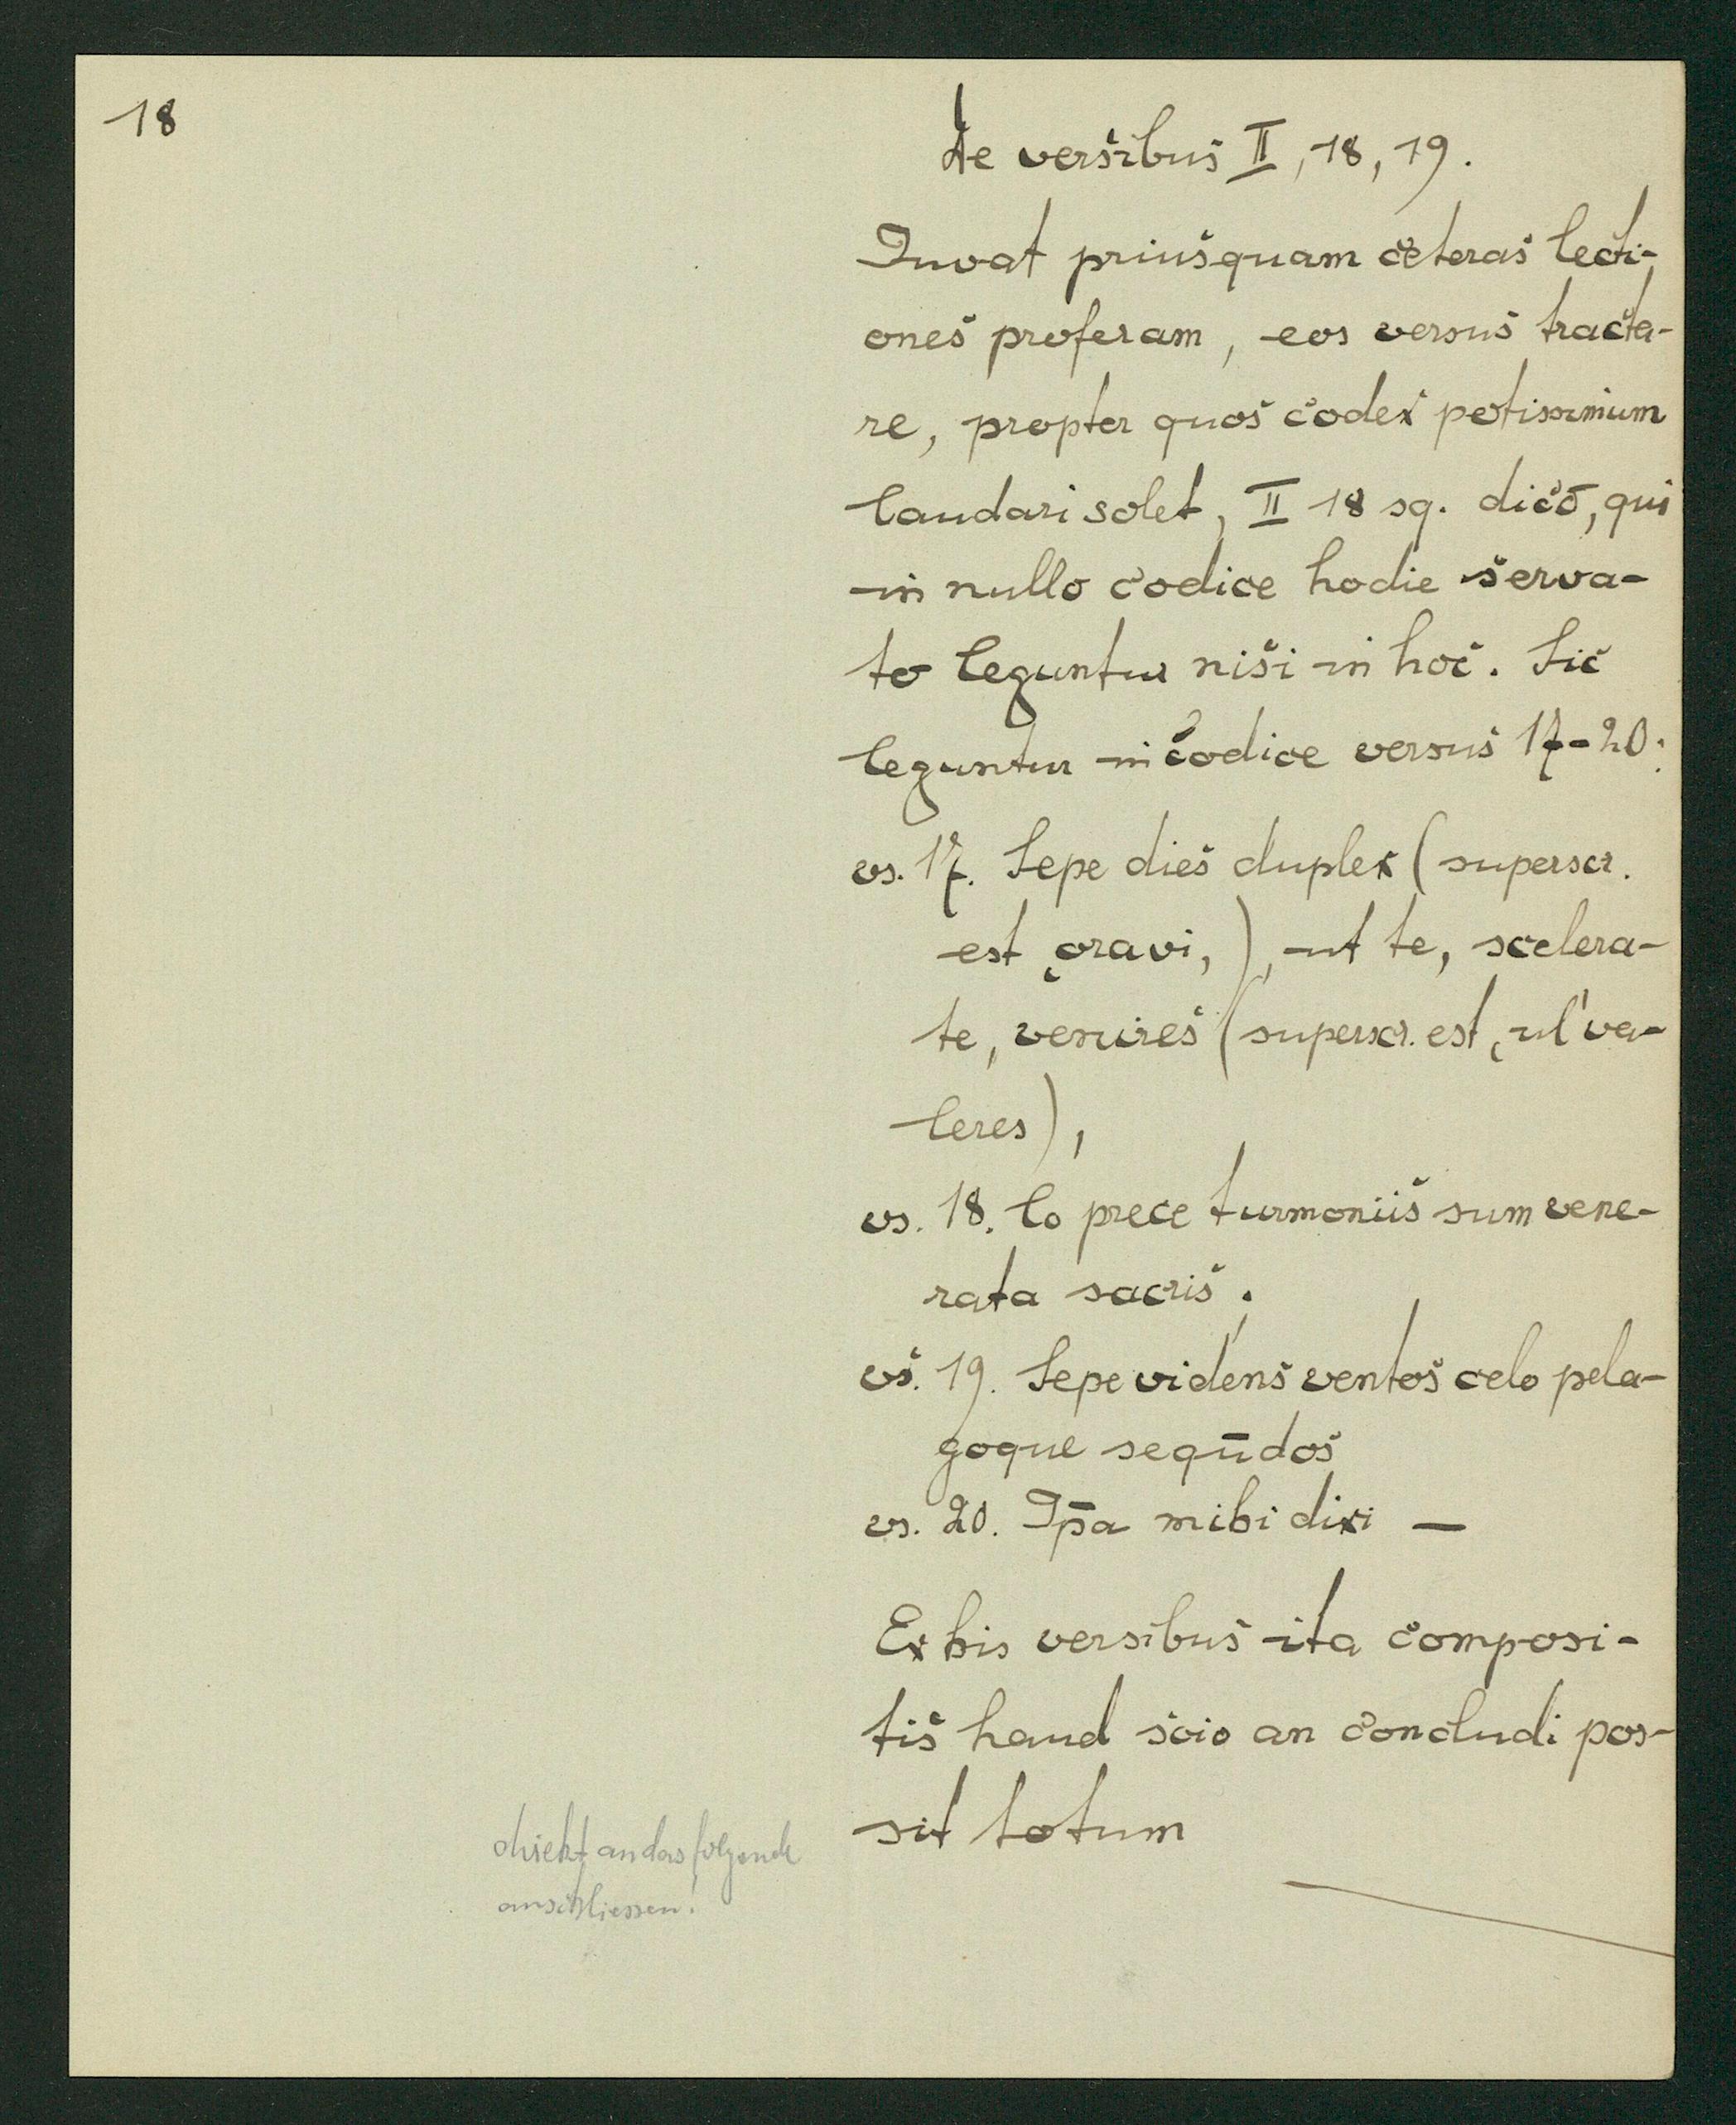 18
De versibus II, 18, 19.
Iuvat priusquam ceteras lecti-
ones proferam, eos versus tracta-
re, propter quos codex potissimum
laudari solet, II 18 sq. dico, qui
in nullo codice hodie serva-
to leguntur nisi in hoc. Sic
leguntur in codice versus 17-20:
vs. 17. Sepe dies duplex (superscr.
est ‚oravi,), ut te, scelera-
te, venires (superscr. est ‚ul' va-
leres),
vs. 18. Co prece turmoniis sum vene-
rata sacris;
vs. 19. Sepe videns ventos celo pela-
goque seqūdos
vs. 20. Ip̄a mihi dixi —
Ex his versibus ita composi-
tis haud scio an concludi pos-
sit totum
direkt an das folgende
anschliessen!